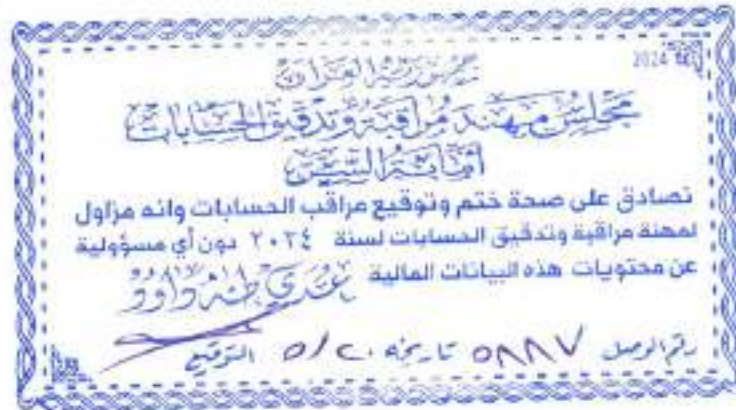 2024
جمهورية العراق
مجلس مهنة مراقبة وتدقيق الحسابات
أمانة السر
نصادق على صحة ختم وتوقيع مراقب الحسابات وانه مزاول
لمهنة مراقبة وتدقيق الحسابات لسنة ٢٠٢٤ دون أي مسؤولية
عن محتويات هذه البيانات المالية
عدي طه داود
رقم الوصل ٥٨٨٧ تاريخه ٥/٢٠ التوقيع